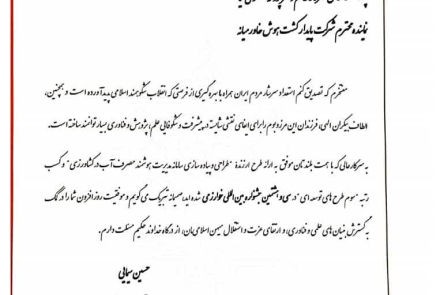 نماینده محترم شرکت پایدار کشت هوش خاورمیانه
مفتخرم که تصدیق کنم استعداد سرشار مردم ایران همراه با بهره گیری از فرصتی که انقلاب شکوهمند اسلامی پدید آورده است و همچنین،
الطاف بیکران الهی، فرزندان این مرز و بوم را برای ایفای نقشی شایسته در پیشرفت و شکوفایی علم، پژوهش و فناوری بسیار توانمند ساخته است.
به سرکار عالی که با همت بلندتان موفق به ارائه طرح ارزنده "طراحی و پیاده سازی سامانه مدیریت هوشمند مصرف آب در کشاورزی" و کسب
رتبه "سوم طرح های توسعه ای" در سی و هشتمین جشنواره بین المللی خوارزمی شده اید، صمیمانه تبریک می گویم و موفقیت روزافزون شما را در کمک
به گسترش بنیان های علمی و فناوری، و ارتقای عزت و استقلال میهن اسلامی مان، از درگاه خداوند حکیم مسئلت دارم.
حسین سیمایی